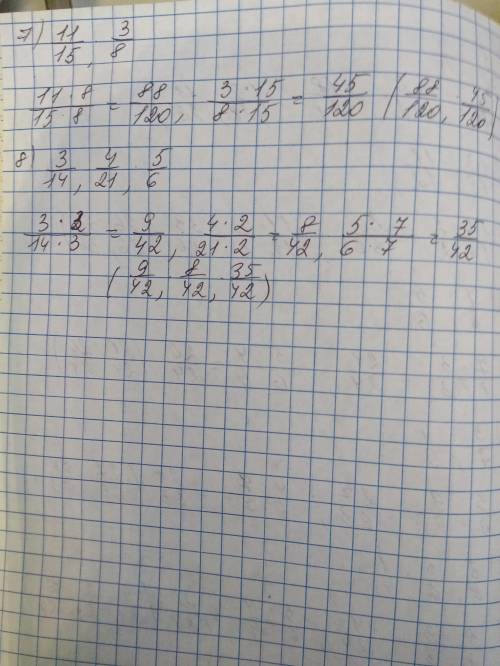 7) 11/15, 3/8
11·8/15·8 = 88/120, 3·15/8·15 = 45/120 (88/120, 45/120)
8) 3/14, 4/21, 5/6
3·3/14·3 = 9/42, 4·2/21·2 = 8/42, 5·7/6·7 = 35/42
(9/42, 8/42, 35/42)